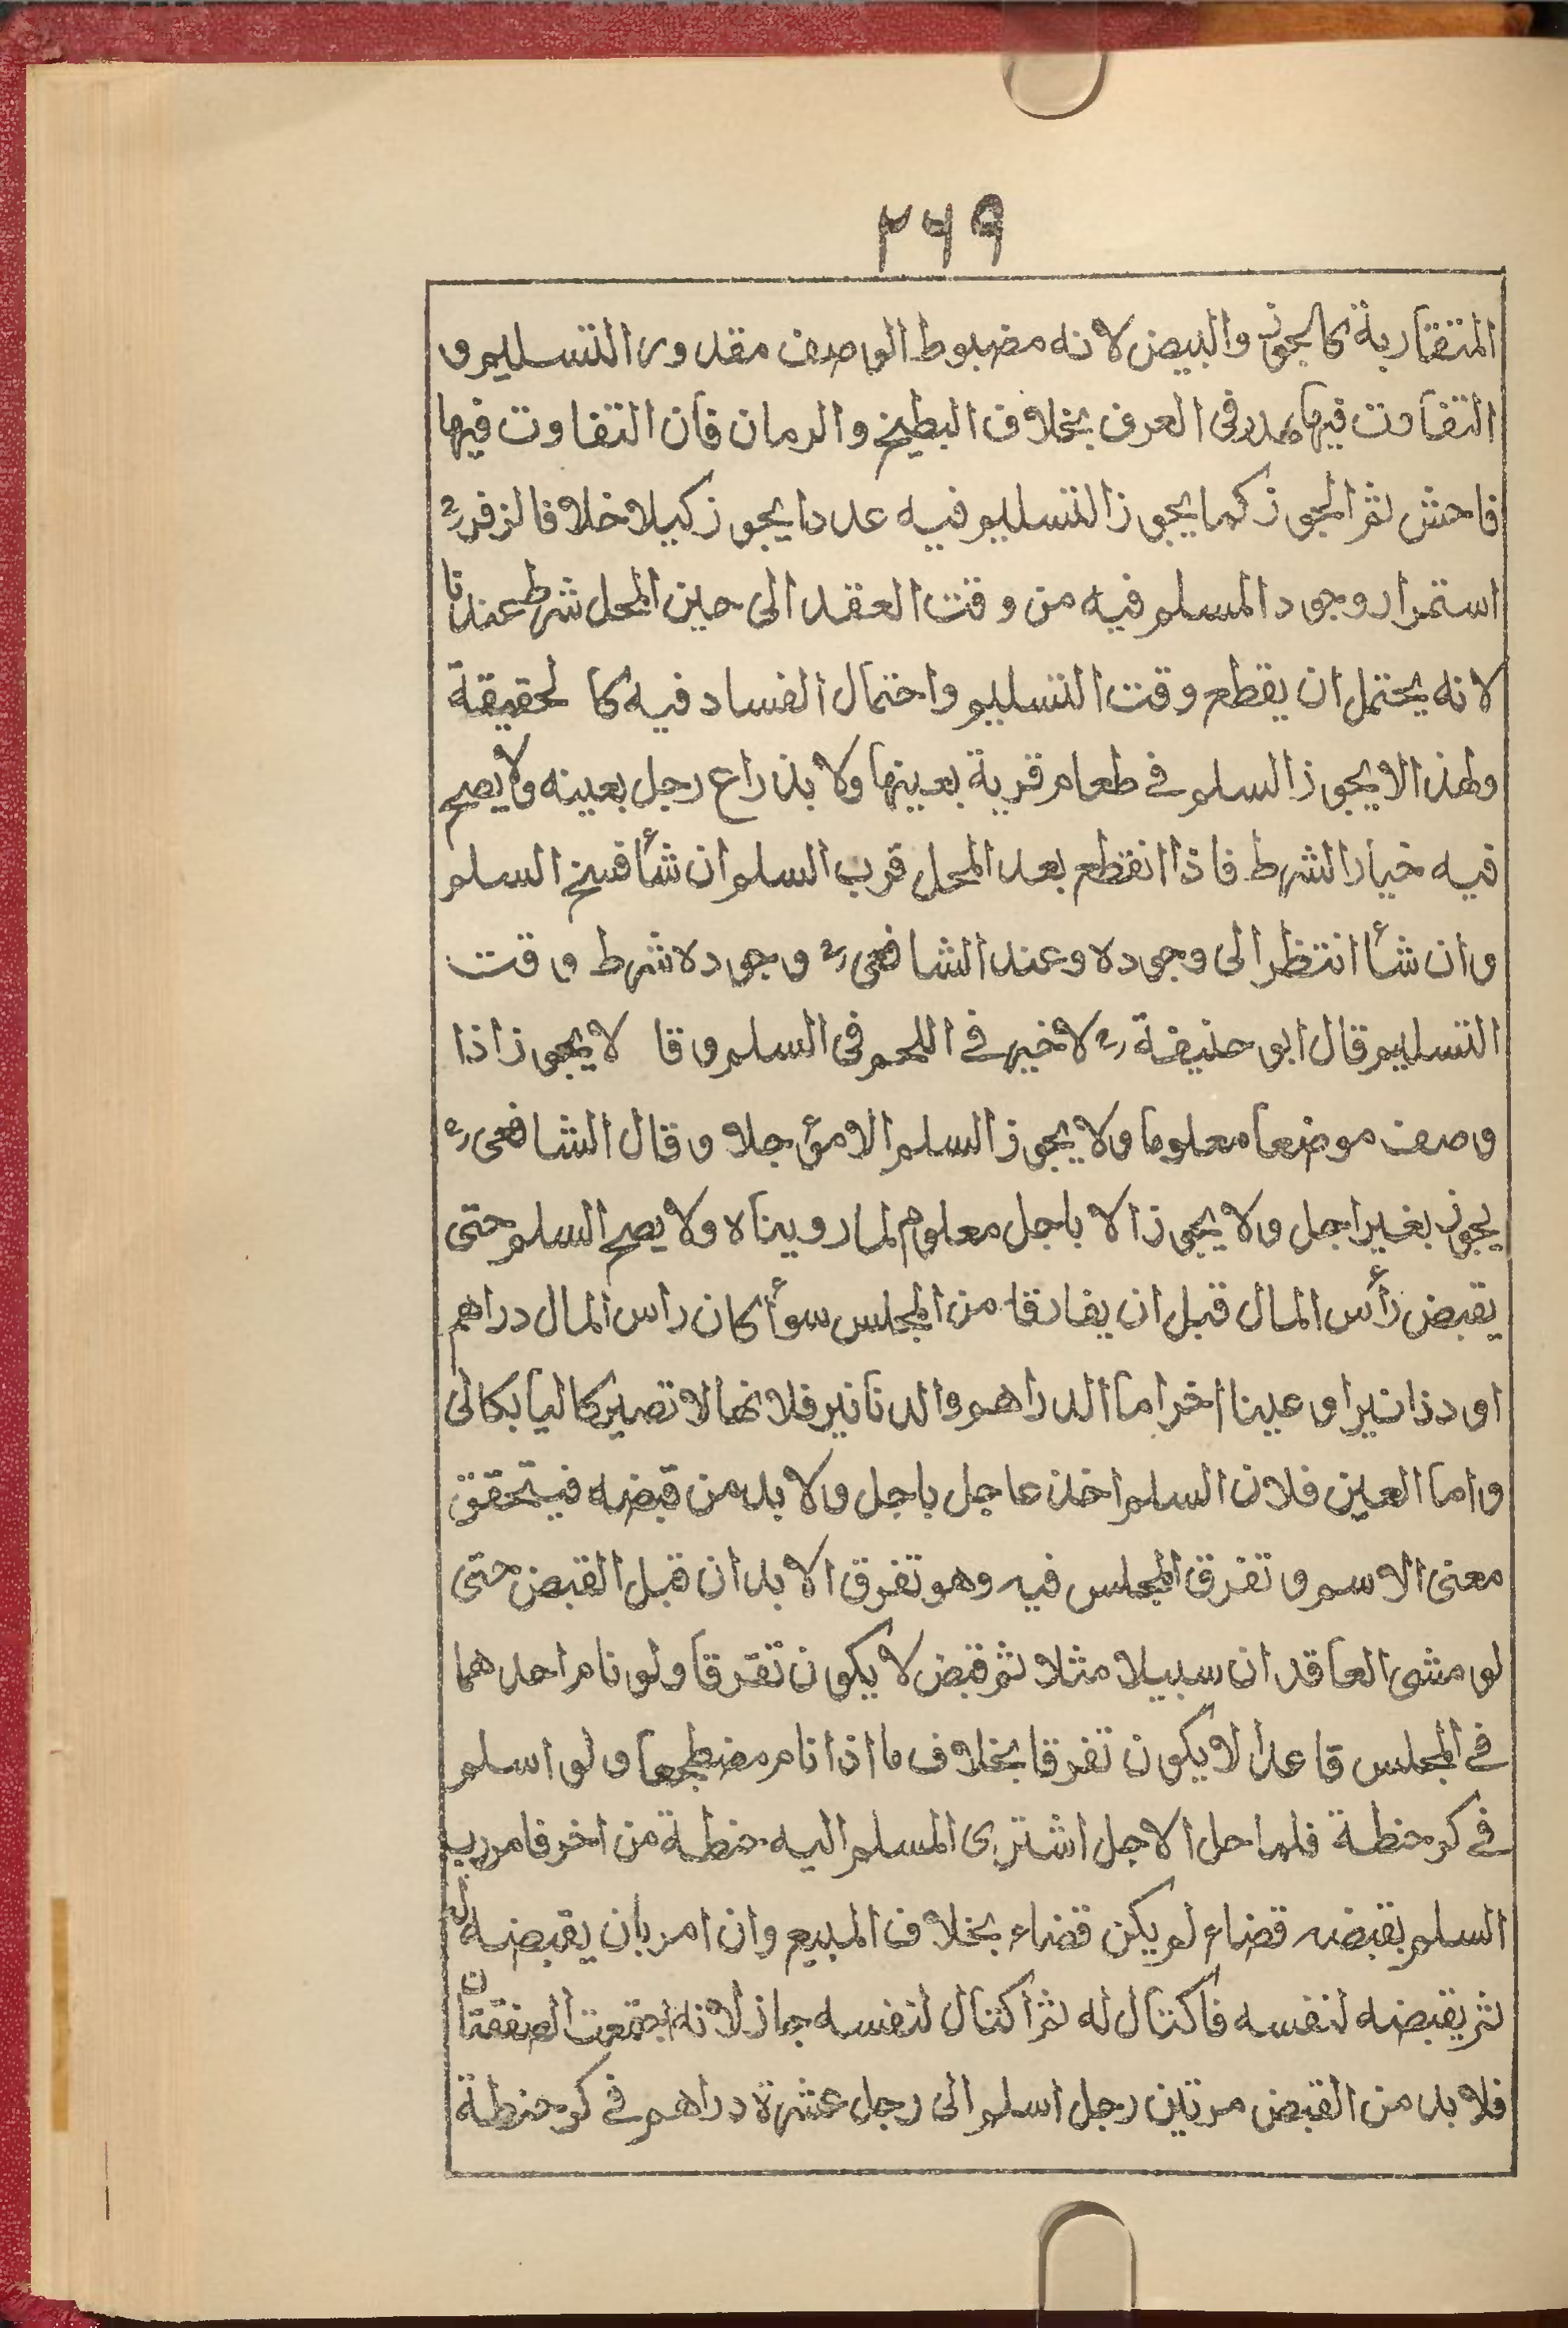 ۲۶۹
المتقاربة كالجوز والبيض لانه مضبوط الوصف مقدور التسليم و
التفاوت فيها هدر فى العرف بخلاف البطيخ والرمان فان التفاوت فيها
فاحش ثم الجوز كما يجوز التسليم فيه عددا يجوز كيلا خلافا لزفر رح
استمرار وجود المسلم فيه من وقت العقد الى حين المحل شرط عندنا
لانه يحتمل ان يقطع وقت التسليم واحتمال الفساد فيه كا لحقيقة
ولهذا لا يجوز السلم فے طعام قرية بعينها ولا بذراع رجل بعينه ولا يصح
فيه خيار الشرط فاذا انقطع بعد المحل قرب السلم ان شأ فسخ السلم
وان شأ انتظر الى وجوده وعند الشافعى رح وجوده شرط وقت
التسليم قال ابو حنيفة رح لا خير فے اللحم فى السلم وقا لا يجوز اذا
وصف موضعا معلوما ولا يجوز السلم الا مؤجلا وقال الشافعى رح
يجوز بغير اجل ولا يجوز الا باجل معلوم لما رويناه ولا يصح السلم حتى
يقبض رأس المال قبل ان يفارقا من المجلس سوأ كان راس المال دراهم
او دنانير او عينا اخر اما الدراهم والدنانير فلانها لا تصير كاليا بكالى
واما العين فلان السلم اخذ عاجل باجل ولا بد من قبضه فيتحقق
معنى الاسم و تفرق المجلس فيه وهو تفرق الابدان قبل القبض حتى
لو مشى العاقدان سبيلا مثلا ثم قبض لا يكون تفرقا ولو نام احدهما
فے المجلس قاعدا لا يكون تفرقا بخلاف ما اذا نام مضطجعا ولو اسلم
فے كر حنطة فلما حل الاجل اشترى المسلم اليه حنطة من اخر فامر رب
السلم بقبضه قضاء لم يكن قضاء بخلاف المبيع وان امر بان يقبضه له
ثم يقبضه لنفسه فاكتال له ثم اكتال لنفسه جاز لانه اجتمعت الصفقتان
فلا بد من القبض مرتين رجل اسلم الى رجل عشرة دراهم فے كر حنطة